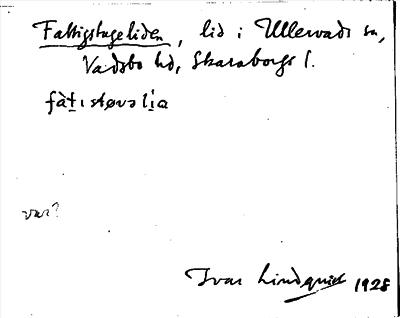 Fattigstugeliden, lid i Ullervads sn,
Vadsbo hd, Skaraborgs l.
fàt̠ıstøvəli̠a
var?
Ivar Lindquist 1928